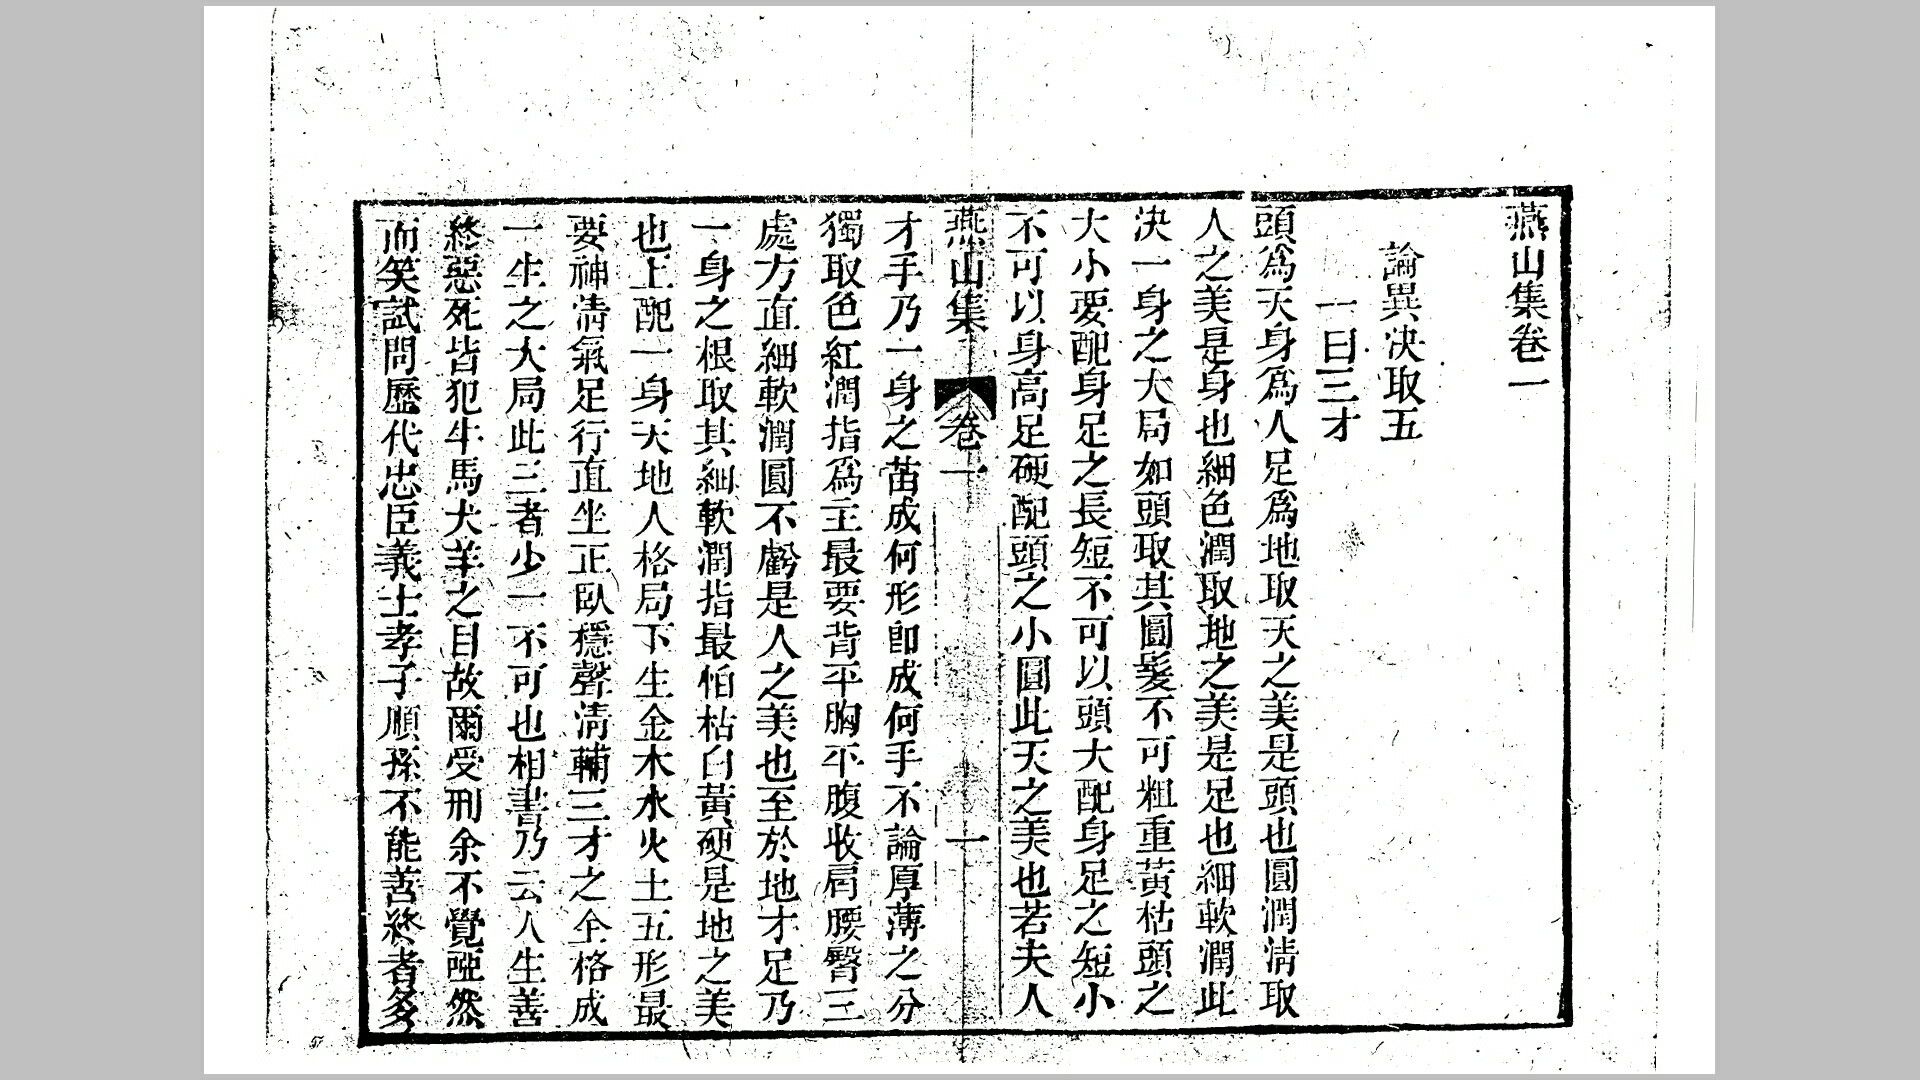 燕山集卷一
論異決取五
一曰三才
頭爲天身爲人足爲地取天之美是頭也圓潤淸取
人之美是身也細色潤取地之美是足也細軟潤此
決一身之大局如頭取其圓髮不可粗重黃枯頭之
大小要配身足之長短不可以頭大配身足之短小
不可以身高足硬配頭之小圓此天之美也若夫人
燕山集 卷一 一
才手乃一身之苗成何形卽成何手不論厚薄之分
獨取色紅潤指爲主最要背平胸平腹收肩腰臀三
處方直細軟潤圓不虧是人之美也至於地才足乃
一身之根取其細軟潤指最怕枯白黃硬是地之美
也上配一身天地人格局下生金木水火土五形最
要神淸氣足行直坐正臥穩聲淸輔三才之全格成
一生之大局此三者少一不可也相書乃云人生善
終惡死皆犯牛馬犬羊之目故爾受刑余不覺啞然
而笑試問歷代忠臣義士孝子順孫不能善終者多